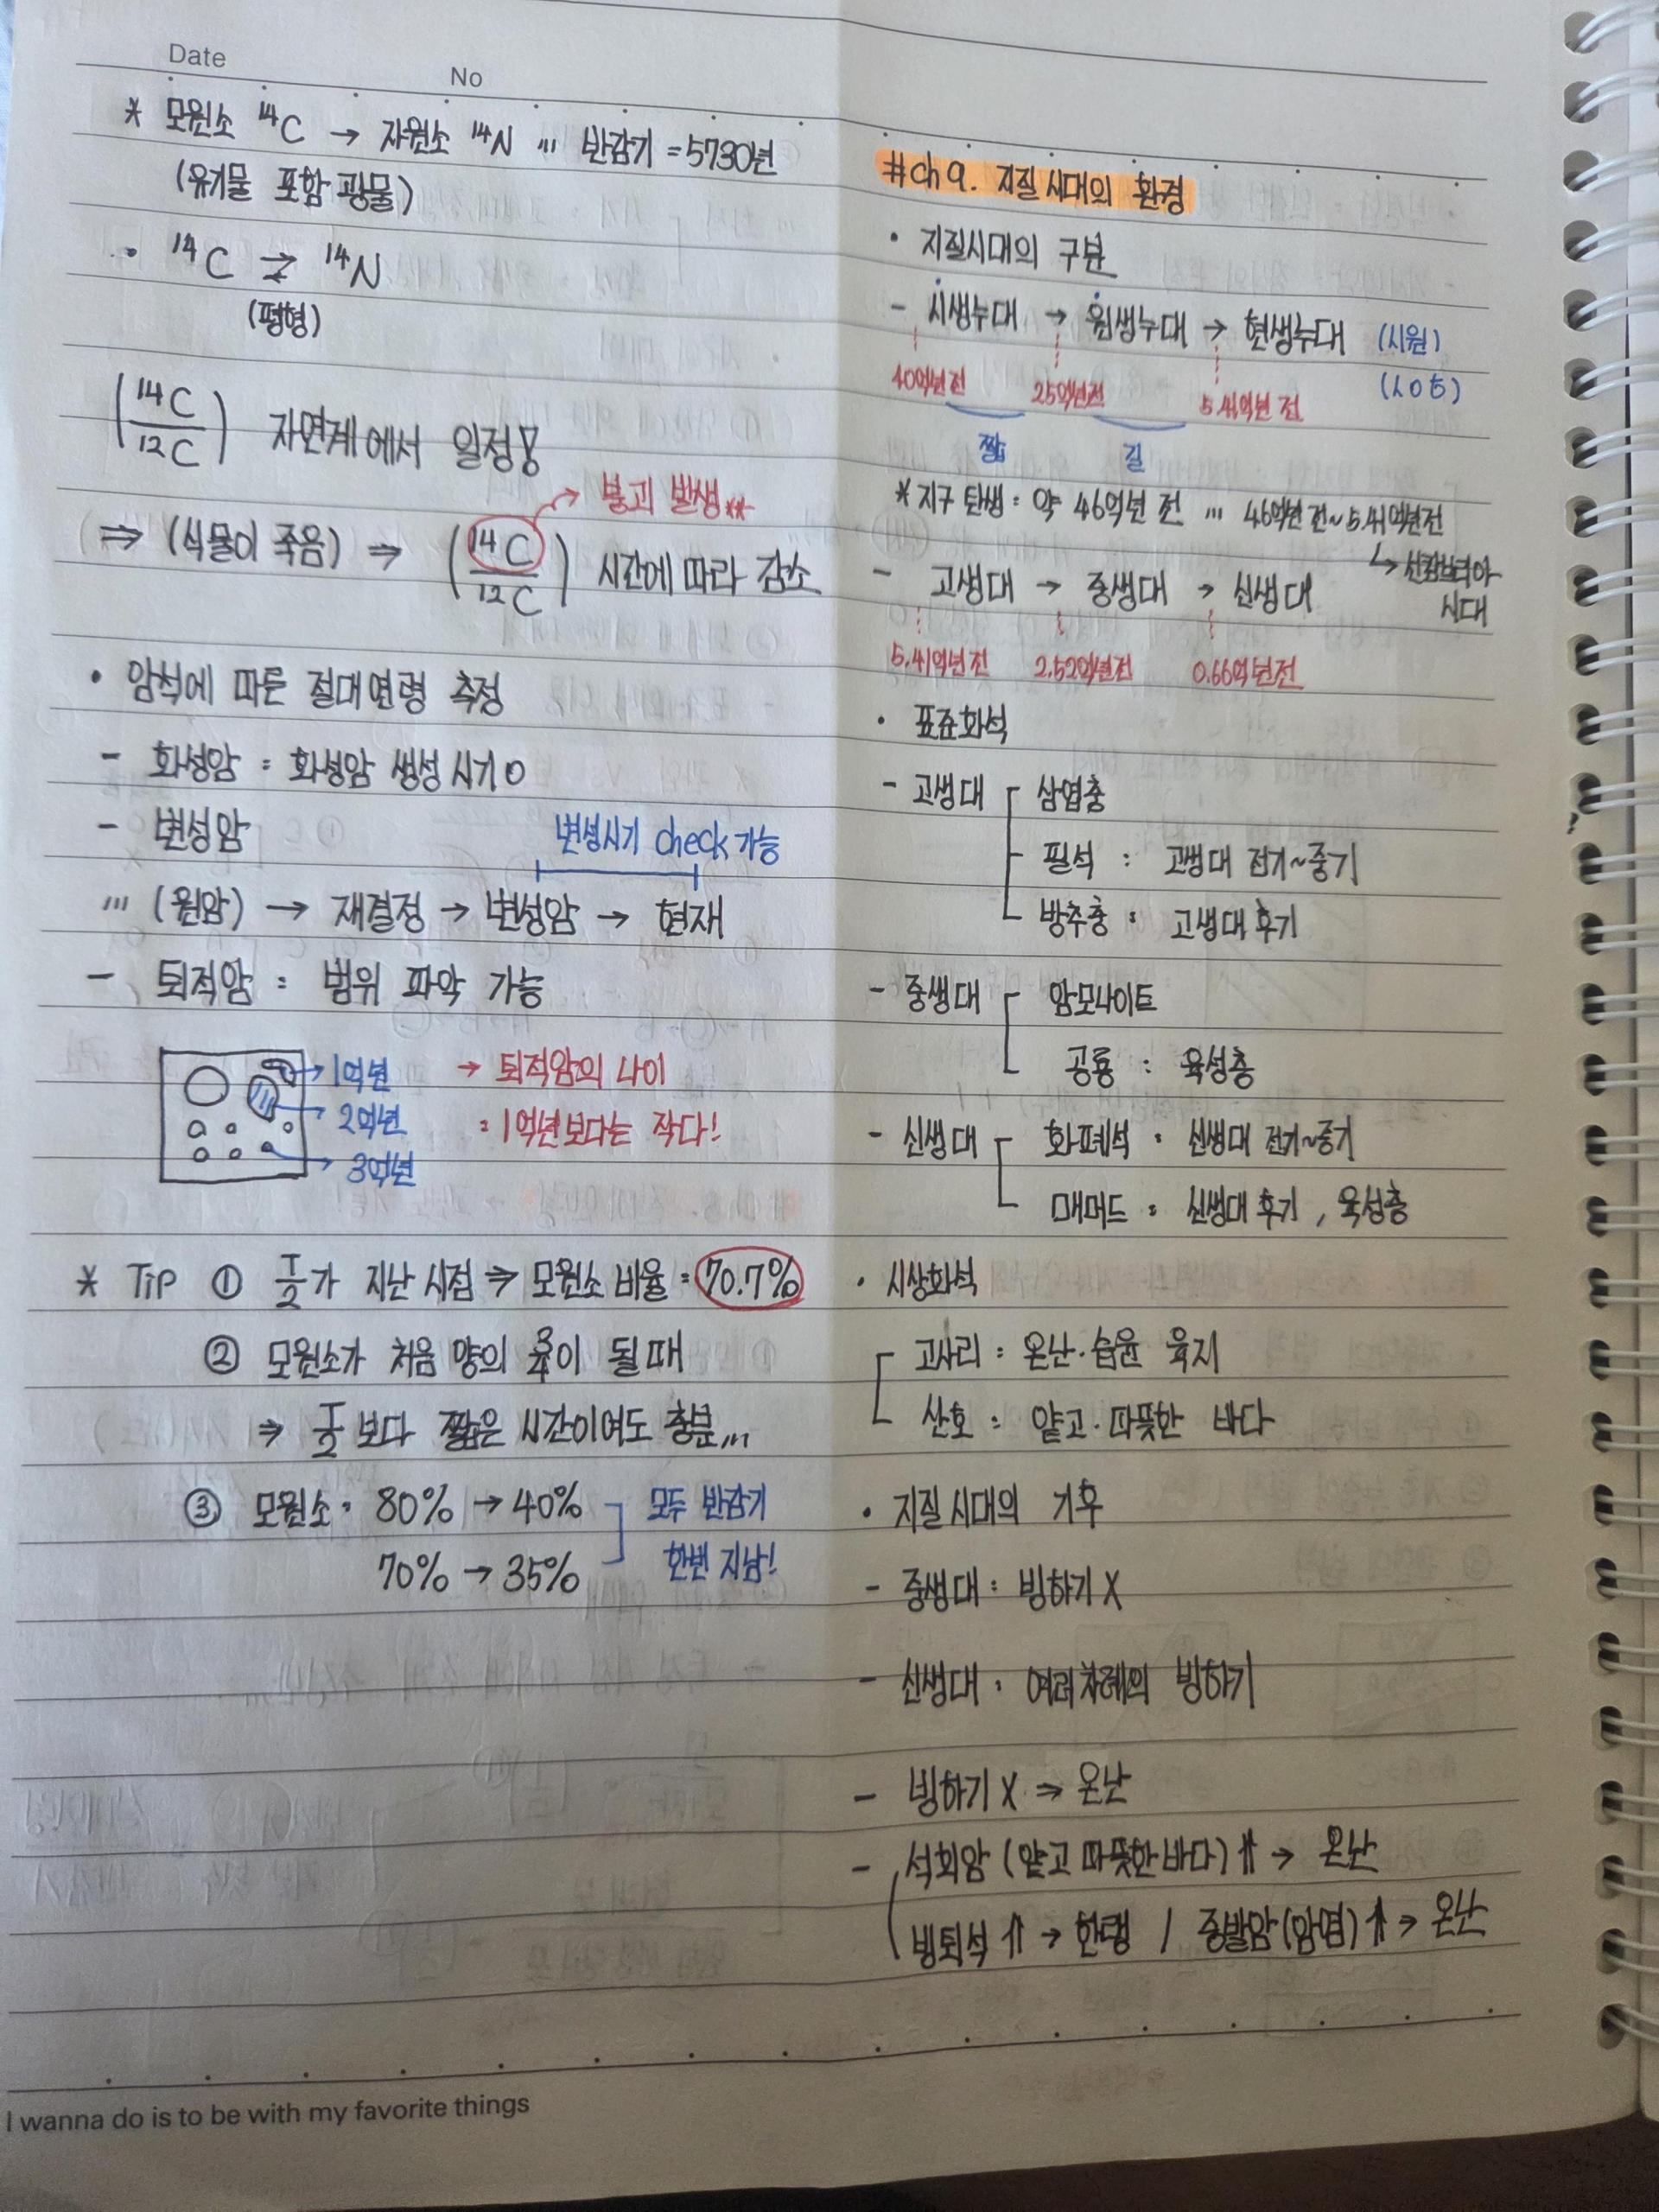 Date
No
* 모원소 ¹⁴C → 자원소 ¹⁴N ⋯ 반감기 = 5730년
(유기물 포함 광물)
• ¹⁴C ⇄ ¹⁴N
(평형)
(¹⁴C/¹²C) 자연계에서 일정!
붕괴 발생**
⇒ (식물이 죽음) ⇒ (¹⁴C/¹²C) 시간에 따라 감소
• 암석에 따른 절대연령 측정
- 화성암 : 화성암 생성 시기 O
- 변성암
변성시기 check 가능
⋯ (원암) → 재결정 → 변성암 → 현재
- 퇴적암 : 범위 파악 가능
→ 1억년
→ 2억년
→ 3억년
→ 퇴적암의 나이
: 1억년보다는 작다!
* TiP ① T/2가 지난 시점 ⇒ 모원소 비율 : 70.7%
② 모원소가 처음 양의 3/4이 될 때
⇒ T/2 보다 짧은 시간이여도 충분⋯
③ 모원소 : 80% → 40%
70% → 35%
모두 반감기
한번 지남!
#ch 9. 지질시대의 환경
• 지질시대의 구분
- 시생누대 → 원생누대 → 현생누대 (시원)
40억년 전 25억년전 5.41억년 전
짧 길
* 지구 탄생 : 약 46억년 전 ⋯ 46억년 전~5.41억년전
↳ 선캄브리아
시대
- 고생대 → 중생대 → 신생대
5.41억년 전 2.52억년전 0.66억년전
• 표준화석
- 고생대 삼엽충
필석 : 고생대 전기~중기
방추충 : 고생대 후기
- 중생대 암모나이트
공룡 : 육성층
- 신생대 화폐석 : 신생대 전기~중기
매머드 : 신생대 후기, 육성층
• 시상화석
고사리 : 온난·습윤 육지
산호 : 얕고·따뜻한 바다
• 지질시대의 기후
- 중생대 : 빙하기 X
- 신생대 : 여러차례의 빙하기
- 빙하기 X ⇒ 온난
- 석회암 (얕고 따뜻한 바다) ⇑ → 온난
빙퇴석 ⇑ → 한랭 / 증발암(암염) ⇑ → 온난
I wanna do is to be with my favorite things